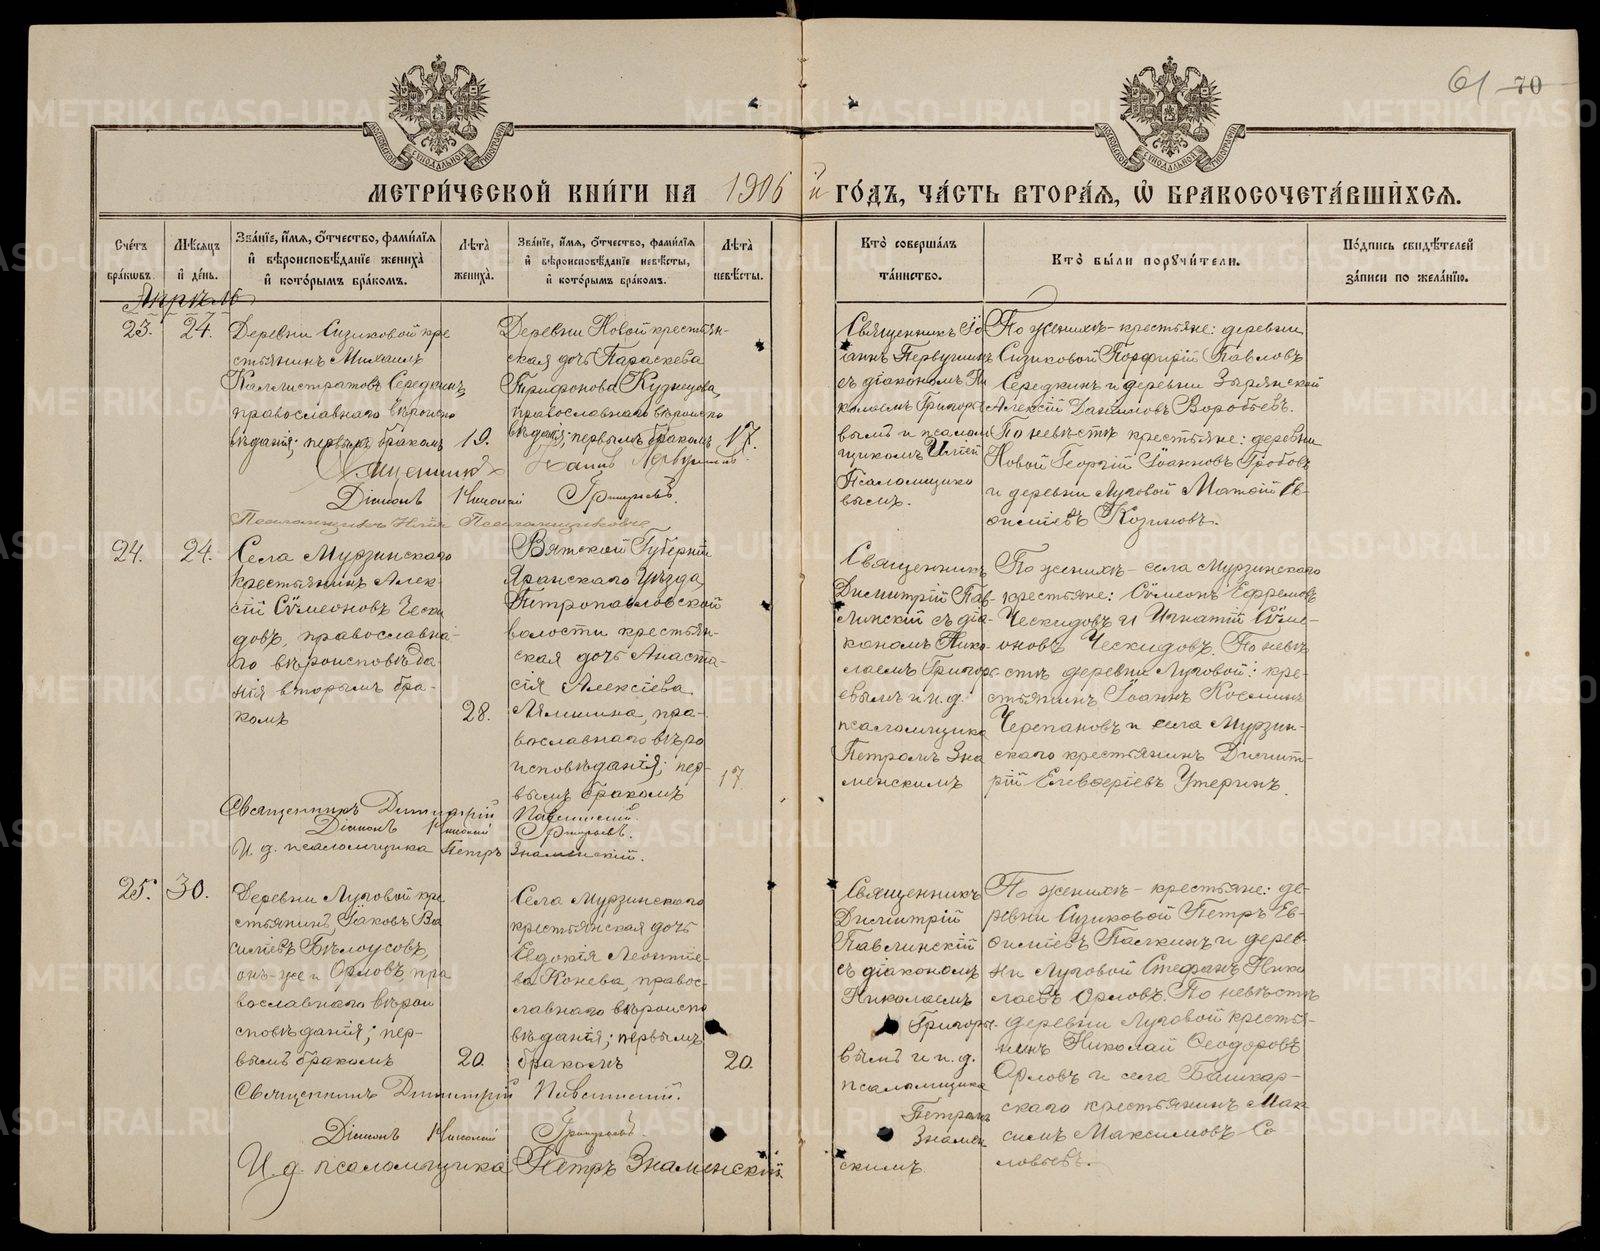 61 70
МЕТРИ́ЧЕСКОЙ КНИ́ГИ НА 1906 й ГО́ДЪ, ЧА́СТЬ ВТОРА́Я, Ѡ БРАКОСОЧЕТА́ВШИХСЯ.
Сче́тъ бра́кѡвъ.
Мѣ́сяцъ и҆ де́нь.
Зва́нїе, и҆́мя, ѻ҆́тчество, фами́лїя
и҆ вѣроисповѣ́данїе жениха̀
и҆ кото́рымъ бра́комъ.
Лѣ́та̀ жениха̀.
Зва́нїе, и҆́мя, ѻ҆́тчество, фами́лїя
и҆ вѣроисповѣ́данїе невѣ́сты,
и҆ кото́рымъ бра́комъ.
Лѣ́та̀ невѣ́сты.
Кто̀ соверша́лъ
та́инство.
Кто̀ бы́ли порꙋчи́тели.
По́дпись свидѣ́телей
за́писи по жела́нїю.
Апрѣль
23. 24.
Деревни Сизиковой кре
стьянинъ Михаилъ
Каллистратовъ Середкинъ,
православнаго вѣроиспо
вѣданія; первымъ бракомъ
19.
Деревни Новой крестьян-
ская дочь Параскева
Трифонова Кузнецова,
православнаго вѣроиспо
вѣданія; первымъ бракомъ
17.
Священникъ Іо
аннъ Первушинъ
съ діакономъ Ни
колаемъ Григорье
вымъ и псалом
щикомъ Иліей
Псаломщико
вымъ.
По женихѣ - крестьяне: деревни
Сизиковой Порфирій Павловъ
Середкинъ и деревни Зырянской
Алексій Данииловъ Воробьевъ.
По невѣстѣ крестьяне: деревни
Новой Георгій Іоанновъ Гробовъ
и деревни Луговой Матѳій Ев-
ѳиміевъ Козиновъ.
Священникъ Іоаннъ Первушинъ.
Діаконъ Николай Григорьевъ.
Псаломщикъ Илія Псаломщиковъ
24. 24.
Села Мурзинскаго
крестьянинъ Алек-
сій Сѵмеоновъ Чески
довъ, православна-
го вѣроисповѣда
нія вторымъ бра-
комъ
28.
Вятской Губерніи
Яранскаго Уѣзда
Петропавловской
волости крестьян-
ская дочь Анаста-
сія Алексіева
Лямшина, пра-
вославнаго вѣро
исповѣданія; пер-
вымъ бракомъ
17.
Священникъ
Димитрій Пав-
линскій съ діа-
кономъ Нико-
лаемъ Григорь
евымъ и и. д.
псаломщика
Петромъ Зна
менскимъ
По женихѣ - села Мурзинскаго
крестьяне: Сѵмеонъ Ефремовъ
Ческидовъ и Игнатій Сѵме-
оновъ Ческидовъ. По невѣ
стѣ деревни Луговой: кре-
стьянинъ Іоаннъ Косминъ
Черепановъ и села Мурзин-
скаго крестьянинъ Димит-
рій Елевѳеріевъ Утеринъ.
Священникъ Димитрій Павлинскій.
Діаконъ Николай Григорьевъ.
И. д. псаломщика Петръ Знаменскій.
25. 30.
Деревни Луговой кре
стьянинъ Іаковъ Ва
силіевъ Бѣлоусовъ,
онъ-же и Орловъ, пра
вославнаго вѣрои
сповѣданія; пер-
вымъ бракомъ
20.
Села Мурзинскаго
крестьянская дочь
Евдокія Леонтіе-
ва Конева, правос-
лавнаго вѣроиспо
вѣданія; первымъ
бракомъ
20.
Священникъ
Димитрій
Павлинскій
съ діакономъ
Николаемъ
Григорье-
вымъ и и. д.
псаломщика
Петромъ
Знамен
скимъ
По женихѣ - крестьяне: де-
ревни Сизиковой Петръ Ев-
ѳиміевъ Палкинъ и дерев-
ни Луговой Стефанъ Нико
лаевъ Орловъ. По невѣстѣ
деревни Луговой крестья-
нинъ Николай Ѳеодоровъ
Орловъ и села Башкар-
скаго крестьянинъ Мак
симъ Максимовъ Со
ловьевъ.
Священникъ Димитрій Павлинскій.
Діаконъ Николай Григорьевъ.
И. д. псаломщика Петръ Знаменскій.